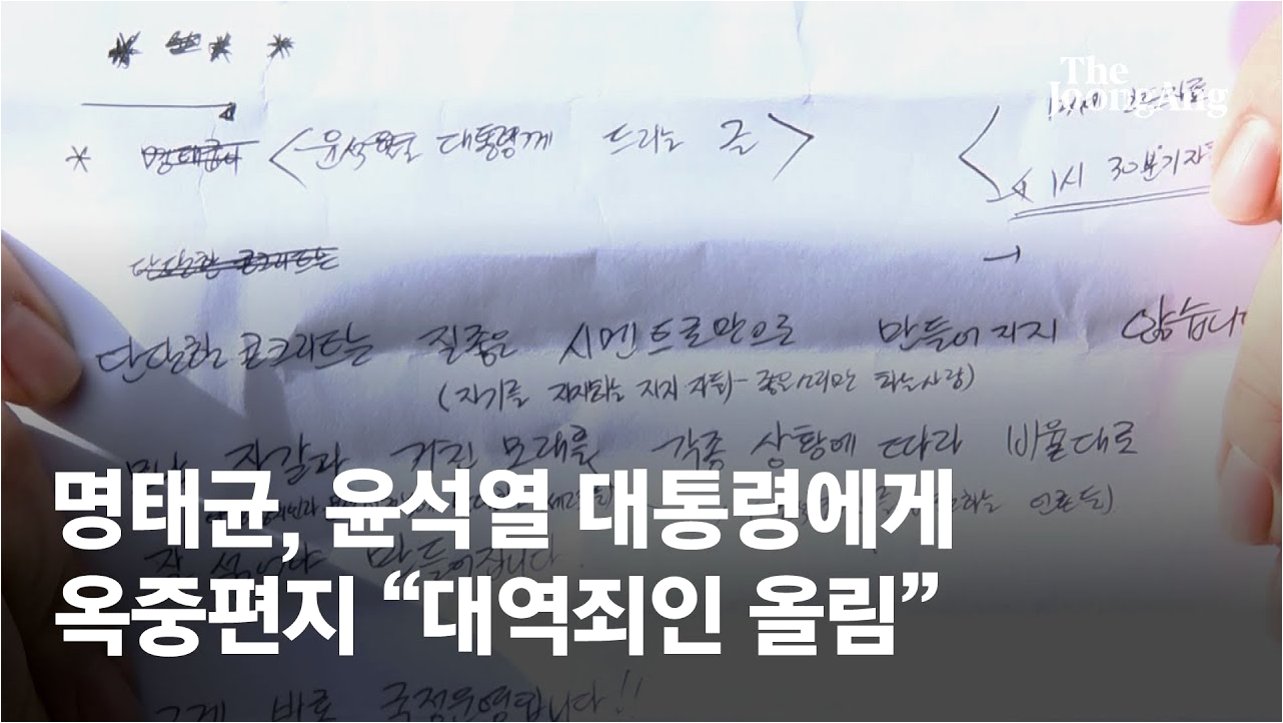 The
JoongAng
* 명태균 <윤석열 대통령께 드리는 글>
1시 30분 기자
단단한 콘크리트는
단단한 콘크리트는 질좋은 시멘트로만으로 만들어지지 않습니다
(자기를 지지하는 지지자들- 좋은소리만 하는사람)
자갈과 거친 모래를 각종 상황에 따라 비율대로
언론들)
잘 섞어야 만들어집니다.
명태균, 윤석열 대통령에게
옥중편지 “대역죄인 올림”
그게 바로 국정운영입니다!!